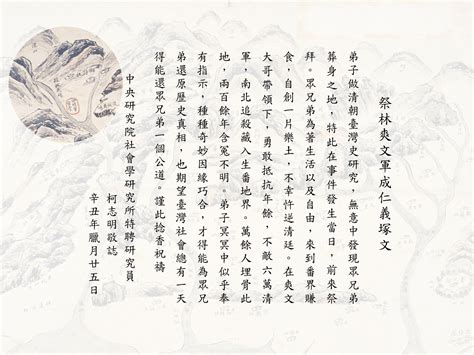 祭林爽文軍成仁義塚文
弟子做清朝臺灣史研究,無意中發現眾兄弟
葬身之地,特此在事件發生當日,前來祭
拜。眾兄弟為著生活以及自由,來到番界賺
食,自創一片樂土,不幸忤逆清廷。在爽文
大哥帶領下,勇敢抵抗年餘,不敵六萬清
軍,南北追殺藏入生番地界。萬餘人埋骨此
地,兩百餘年含冤不明。弟子冥冥中似乎奉
有指示,種種奇妙因緣巧合,才得能為眾兄
弟還原歷史真相,也期望臺灣社會總有一天
得能還眾兄弟一個公道。謹此捻香祝禱
中央研究院社會學研究所特聘研究員
柯志明敬誌
辛丑年臘月廿五日